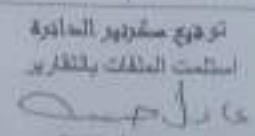 توقيع سكرتير الدائرة
استلمت الملفات بالتقارير